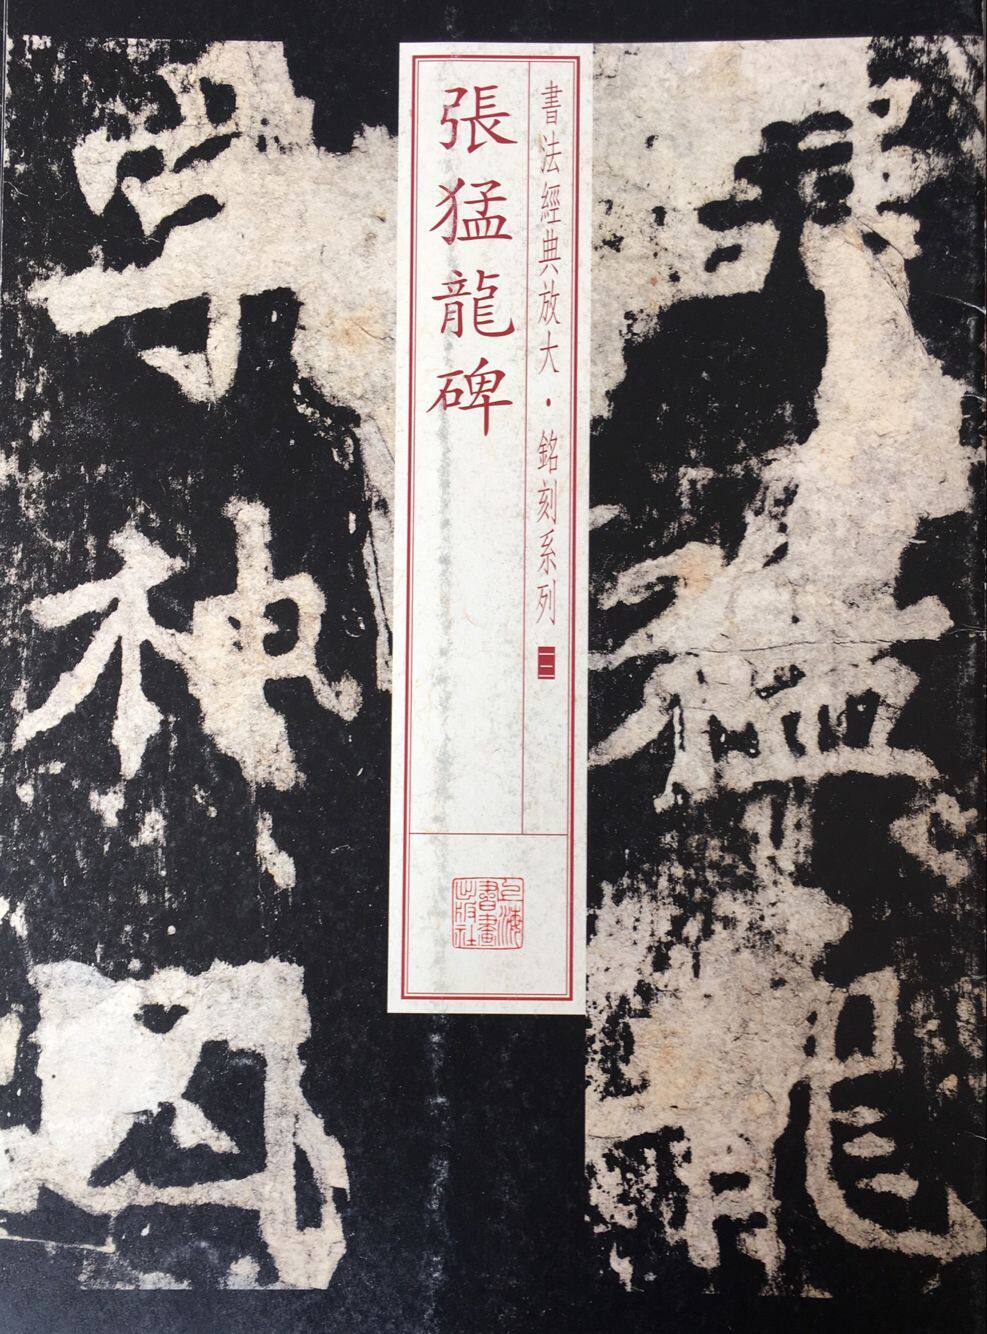 張猛龍碑
書法經典放大・銘刻系列
上海書畫出版社
猛龍
字神囧